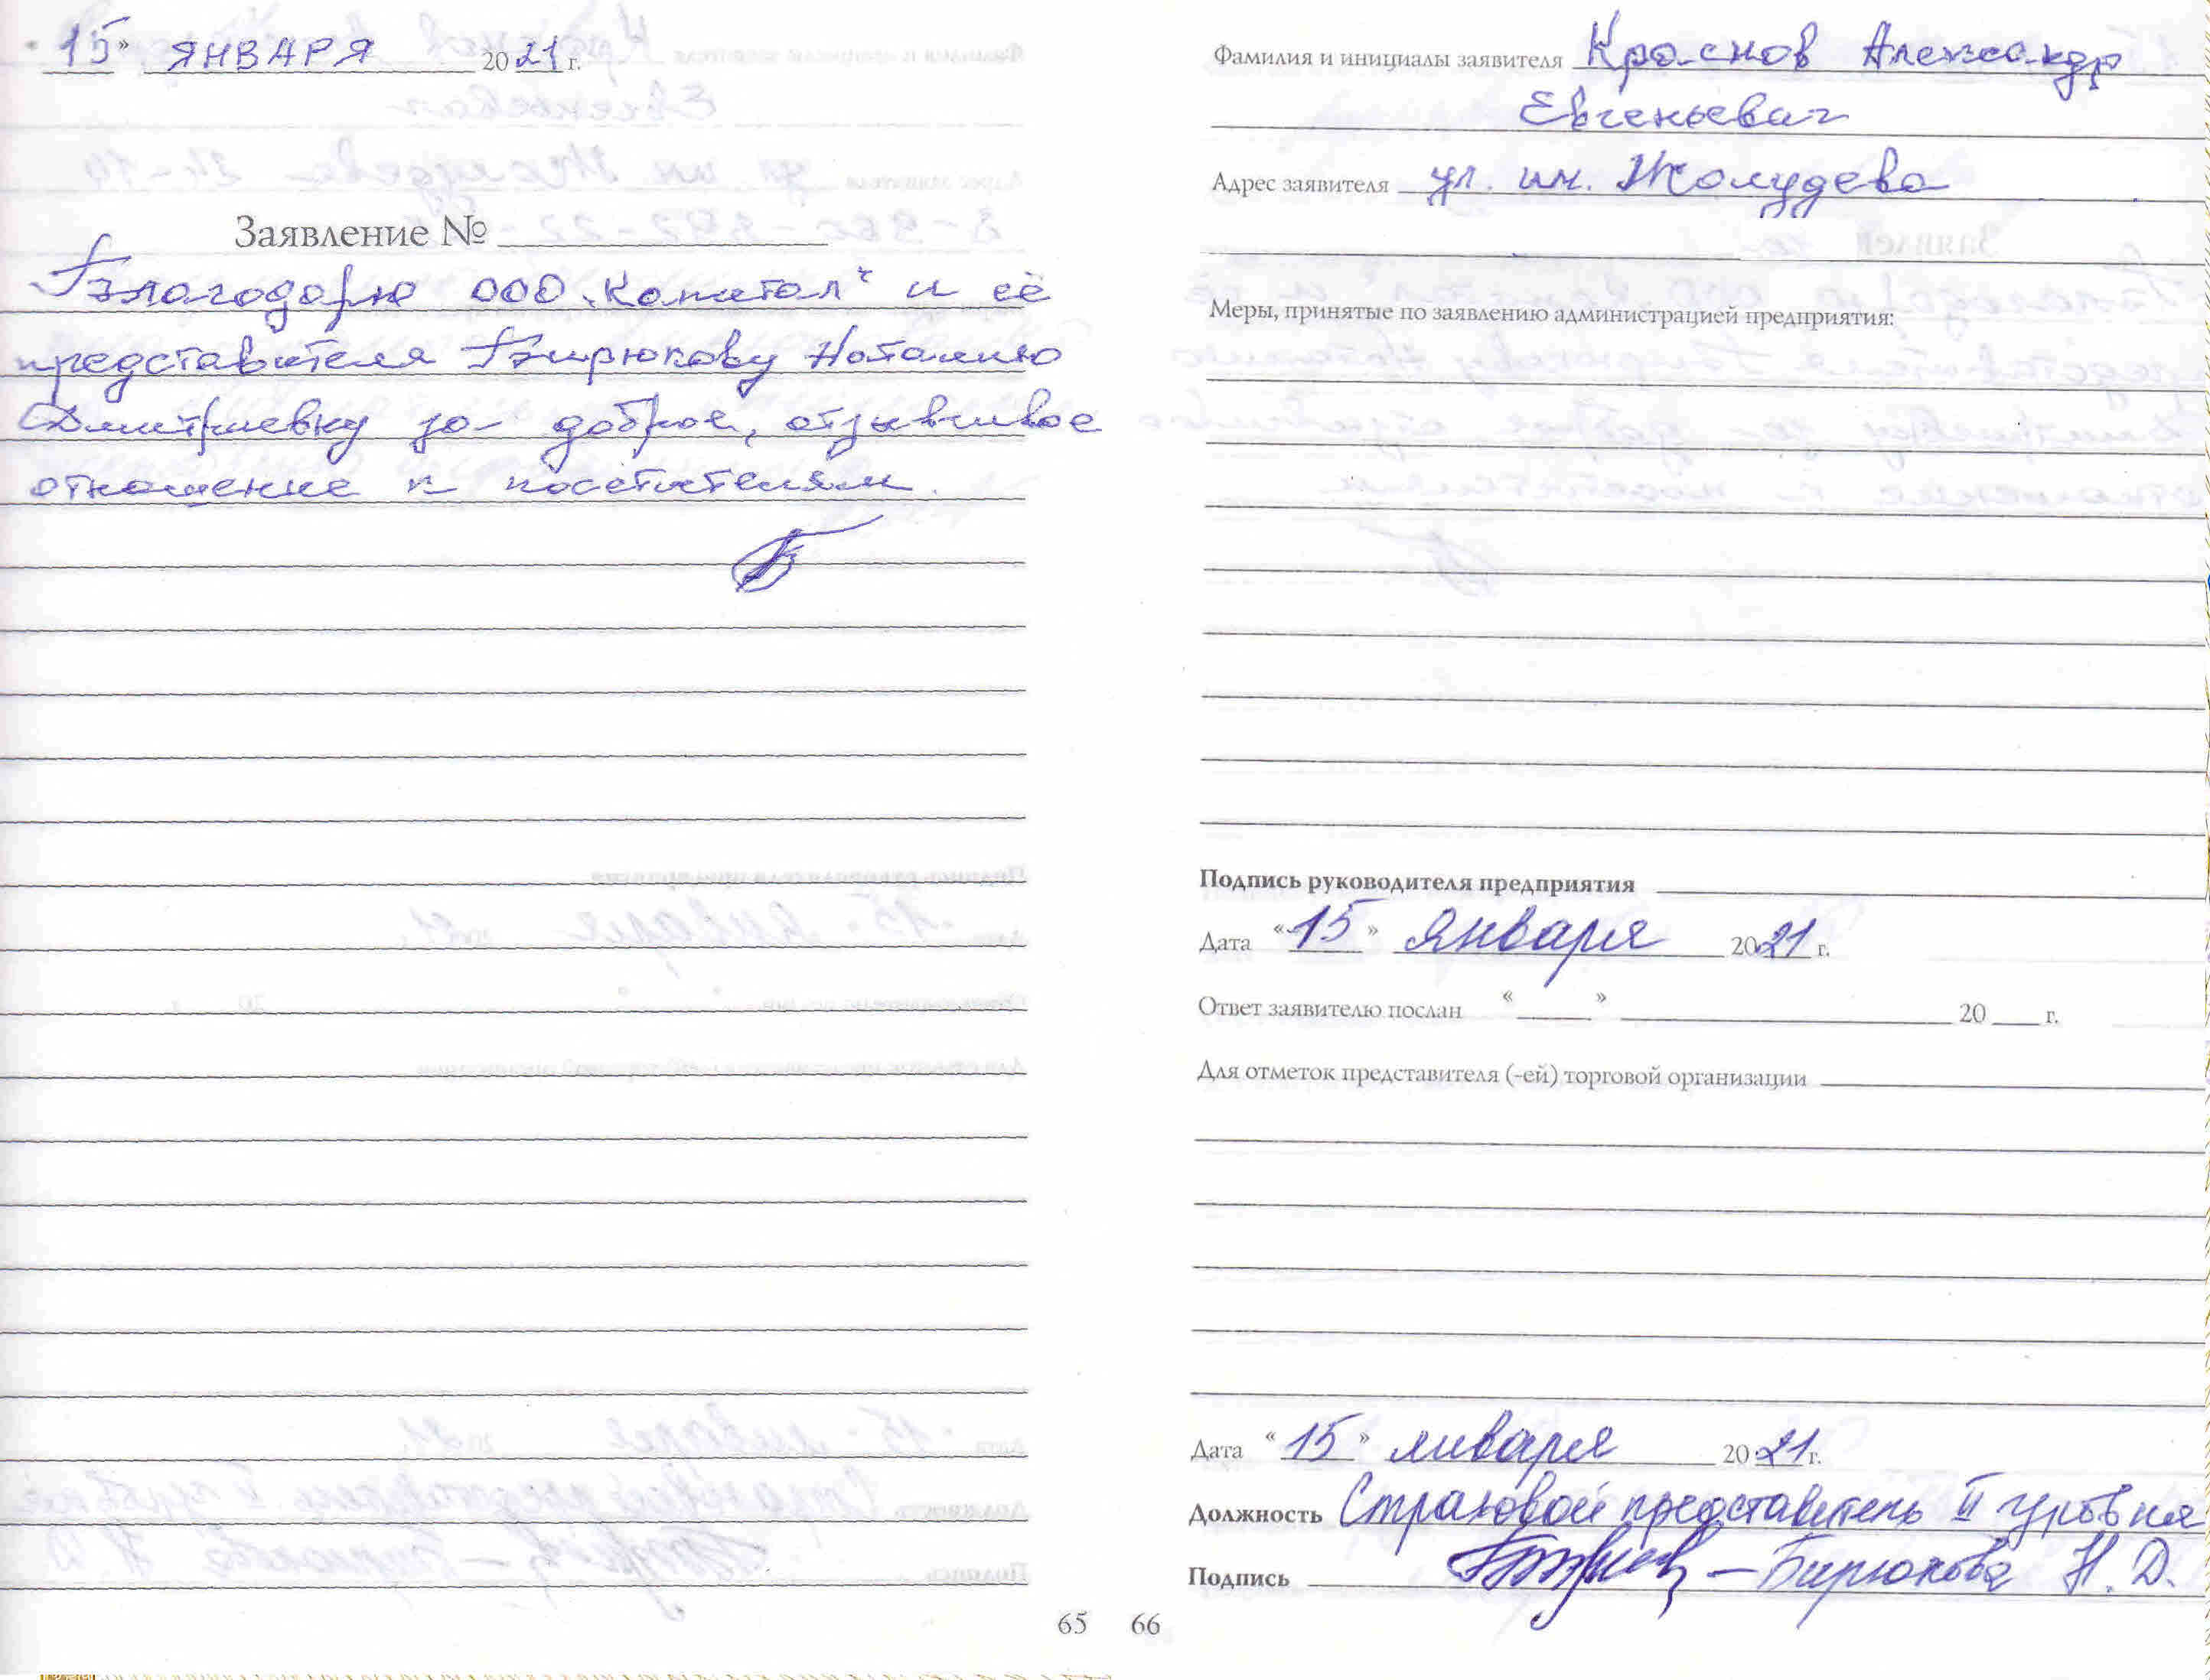 « 15 » ЯНВАРЯ 2021 г.
Заявление №
Благодарю ООО „Капитал" и её
представителя Бирюкову Наталию
Дмитриевну за доброе, отзывчивое
отношение к посетителям.
65
Фамилия и инициалы заявителя Краснов Александр
Евгеньевич
Адрес заявителя ул. им. Жолудева
Меры, принятые по заявлению администрацией предприятия:
Подпись руководителя предприятия
Дата « 15 » января 2021 г.
Ответ заявителю послан « » 20 г.
Для отметок представителя (-ей) торговой организации
Дата « 15 » января 2021 г.
Должность Страховой представитель II уровня
Подпись – Бирюкова Н. Д.
66